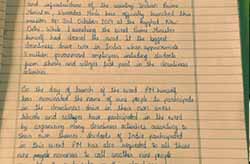 and infrastructure of the country Indian Prime
Minister, Narendra Modi has officially launched this
mission on 2nd October 2014 at the Rajghat, New
Delhi. While launching the event Prime Minister
himself had cleaned the road. It the biggest
cleanliness drive ever in India when approximately
3 million government employees including students
from schools and colleges took part in the cleanliness
activities.
On the day of launch of the event PM himself
has nominated the name of nine people to participate
in the cleanliness drive in their own areas
Schools and colleges have participated in the event
by organising many cleanliness activities according to
their own themes. Students of India participated
in this event. PM has also requested to all those
nine people nominees to call another nine people